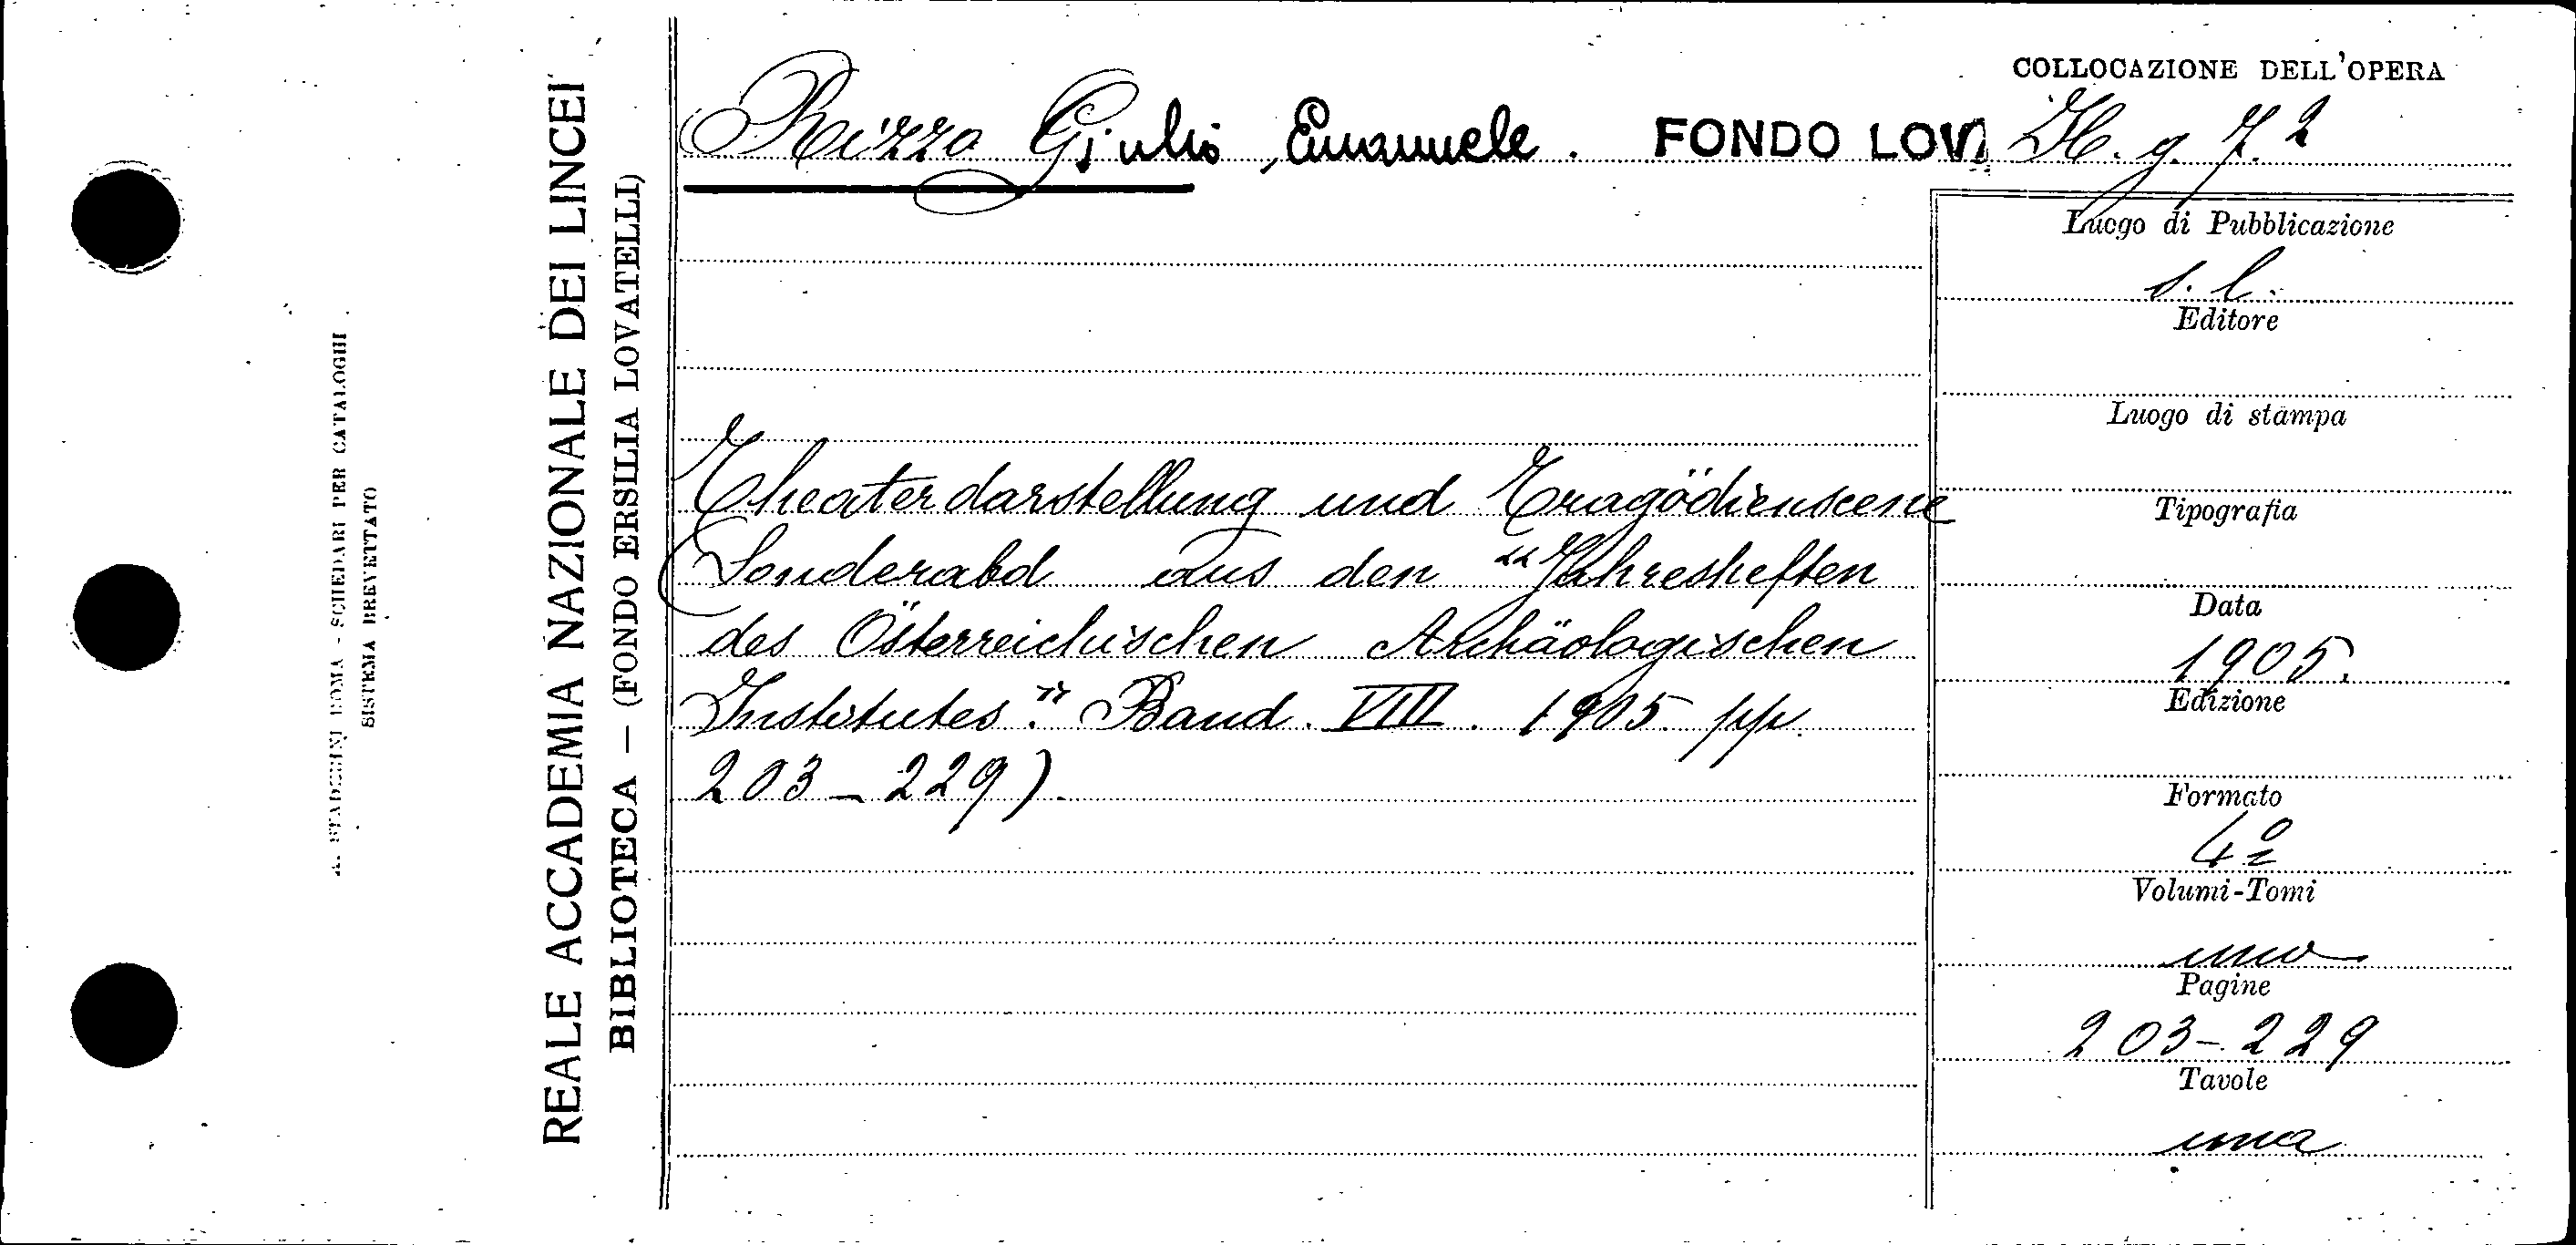 REALE ACCADEMIA NAZIONALE DEI LINCEI
BIBLIOTECA — (FONDO ERSILIA LOVATELLI)
STADERINI ROMA - SCHEDARI PER CATALOGHI
SISTEMA BREVETTATO
COLLOCAZIONE DELL'OPERA
Rizzo Giulio, Emanuele. FONDO LOV. g. 7. 2
Theaterdarstellung und Tragödienscene
(Sonderabd aus den "Jahresheften
des Österreichischen Archäologischen
Institutes." Band. VIII. 1905. pp.
203-229).
Luogo di Pubblicazione
s. l.
Editore
Luogo di stampa
Tipografia
Data
1905.
Edizione
Formato
4º
Volumi-Tomi
uno
Pagine
203-229
Tavole
una